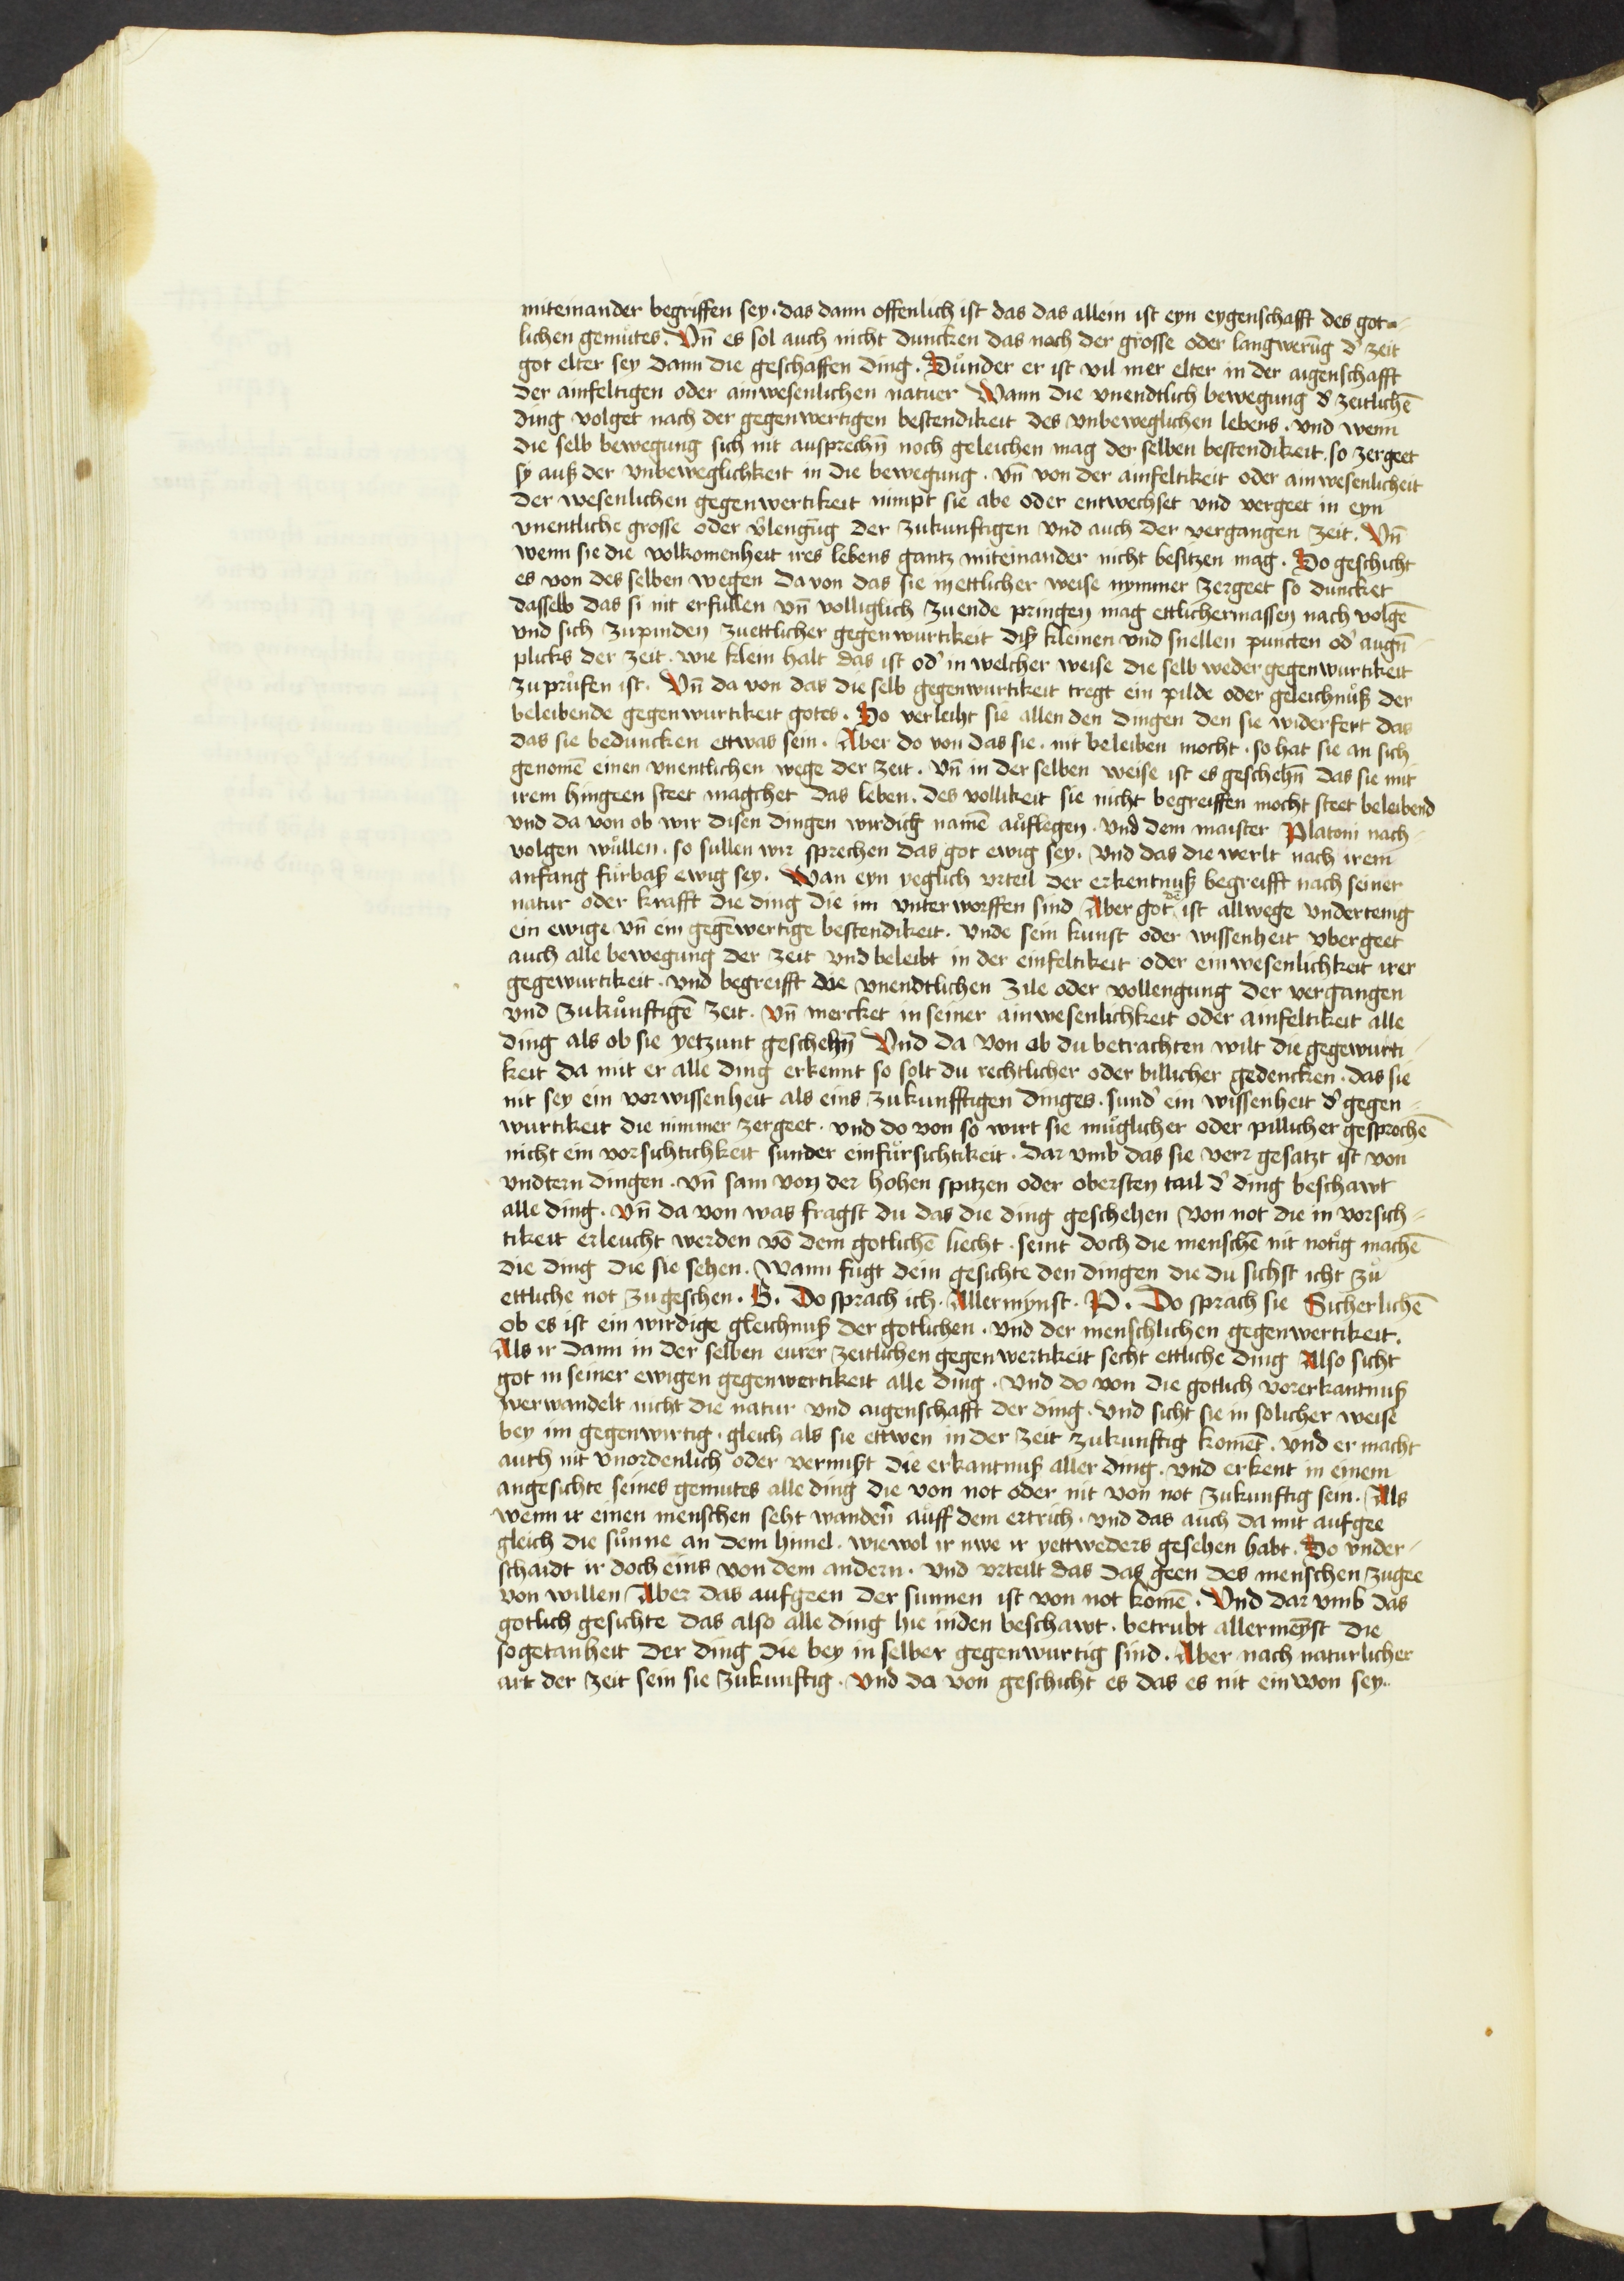 miteinander begriffen sey · das dann offenlich ist das das allein ist eyn eygenschafft des got-
lichen gemůtes. Vn̄ es sol auch nicht duncken das nach der grosse oder langwerūg d' zeit
got elter sey dann die geschaffen ding. Sůnder er ist vil mer elter in der aigenschafft
der ainfeltigen oder ainwesenlichen natuer Wann die vnendtlich bewegung d' zeitlichē
ding volget nach der gegenwertigen bestendikeit des vnbeweglichen lebens. vnd wenn
die selb bewegung sich nit ausprechn̄ noch geleichen mag der selben bestendikeit. so zergeet
sy auß der vnbeweglichkeit in die bewegung. vn̄ von der ainfeltikeit oder ainwesenlicheit
der wesenlichen gegenwertikeit nimpt sie abe oder entwechset vnd vergeet in eyn
vnentliche grosse oder v'lengūg der zukunftigen vnd auch der vergangen zeit. Vn̄
wenn sie die volkomenheit ires lebens gantz miteinander nicht besitzen mag. So geschicht
es von des selben wegen da von das sie in ettlicher weise nymmer zergeet so duncket
dasselb das si nit erfullen vn̄ volliglich zu ende pringen mag ettlichermassen nach volgē
vnd sich zupinden zu ettlicher gegenwurtikeit diß kleinen vnd snellen puncten od' augn̄-
plicks der zeit. wie klein halt das ist od' in welcher weise die selb weder gegenwurtikeit
zu průfen ist. Vn̄ da von das die selb gegenwurtikeit tregt ein pilde oder geleichnůß der
beleibende gegenwurtikeit gotes. So verleiht sie allen den dingen den sie widerfert das
das sie beduncken ettwas sein. Aber do von das sie · nit beleiben mocht · so hat sie an sich
genomē einen vnentlichen wege der zeit. vn̄ in der selben weise ist es geschehn̄ das sie mit
irem hingeen steet magchet das leben. des vollikeit sie nicht begreiffen mocht steet beleibend
vnd da von ob wir disen dingen wirdich namē aůflegen. vnd dem maister Platoni nach-
volgen wůllen. so sullen wir sprechen das got ewig sey. vnd das die werlt nach irem
anfang fůrbaß ewig sey. Wan eyn yeglich vrteil der erkentnuß begreifft nach seiner
natur oder krafft die ding die im vnterworffen sind Aber got dē ist allwege vndertenig
ein ewige vn̄ ein gegēwertige bestendikeit. vnde sein kunst oder wissenheit vbergeet
auch alle bewegung der zeit vnd beleibt in der einfeltikeit oder einwesenlichkeit irer
gegewurtikeit. vnd begreifft die vnendtlichen zile oder vollengung der vergangen
vnd zukůnftigē zeit. vn̄ mercket in seiner ainwesenlichkeit oder ainfeltikeit alle
ding als ob sie yetzunt geschehn̄ Vnd da von ob du betrachten wilt die gegewurti-
keit da mit er alle ding erkennt so solt du rechtlicher oder billicher gedencken. das sie
nit sey ein vorwissenheit als eins zukunfftigen dinges. sund' ein wissenheit d' gegen-
wurtikeit die nimmer zergeet. vnd do von so wirt sie můglicher oder pillicher gesprochē
nicht ein vorsichtichkeit sunder ein fůrsichtikeit. dar vmb das sie verr gesatzt ist von
vndtern dingen. vn̄ sam von der hohen spitzen oder obersten tail d' ding beschawt
alle ding. vn̄ da von was fragst du das die ding geschehen von not die in vorsich-
tikeit erleucht werden vō dem gotlichē liecht. seint doch die menschē nit notig machē
die ding die sie sehen. wann fůgt dein gesichte den dingen die du sichst icht zů
ettliche not zu geschen. B. Do sprach ich. Allermynst. P. Do sprach sie Sicherlichē
ob es ist ein wirdige gleichnuß der gotlichen. vnd der menschlichen gegenwertikeit.
Als ir dann in der selben eurer zeitlichen gegenwertikeit secht ettliche ding Also sicht
got in seiner ewigen gegenwertikeit alle ding. vnd do von die gotlich vorerkantnuß
verwandelt nicht die natur vnd aigenschafft der ding. vnd sicht sie in solicher weise
bey im gegenwirtig. gleich als sie ettwen in der zeit zukunftig komēt. vnd er macht
auch nit vnordenlich oder vermißt die erkantnuß aller ding. vnd erkent in einem
angesichte seines gemutes alle ding die von not oder nit von not zukunftig sein. Als
wenn ir einen menschen seht wandern̄ aůff dem ertrich. vnd das auch da mit aufgee
gleich die sůnne an dem himel. wie wol ir nwe ir yettweders gesehen habt. So vnder-
schaidt ir doch eins von dem andern. vnd vrteilt das das geen des menschen zugee
von willen Aber das aufgeen der sunnen ist von not komē. Vnd dar vmb das
gotlich gesichte das also alle ding hie inden beschawt. betrubt allermeyst die
sogetanheit der ding die bey in selber gegenwurtig sind. Aber nach naturlicher
art der zeit sein sie zukunftig. vnd da von geschicht es das es nit ein won sey.